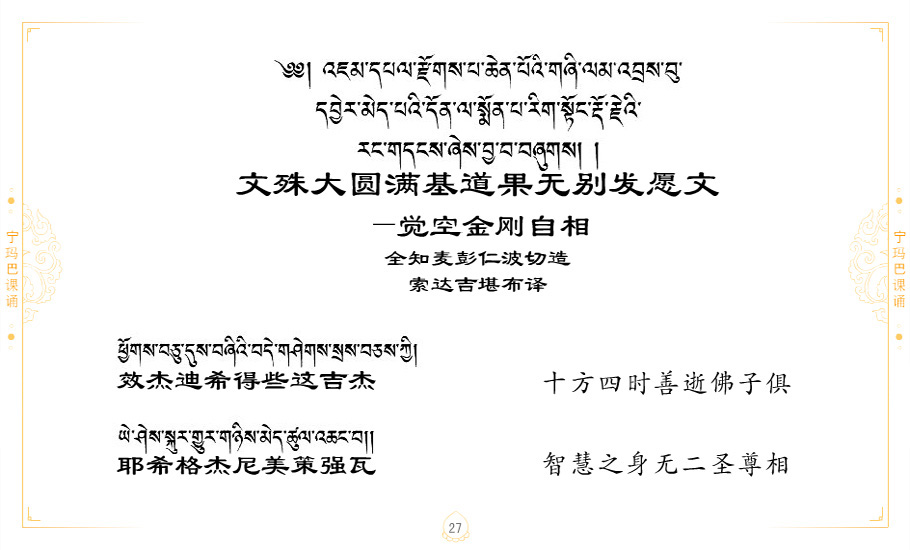 ༄༅། འཇམ་དཔལ་རྫོགས་པ་ཆེན་པོའི་གཞི་ལམ་འབྲས་བུ་
དབྱེར་མེད་པའི་དོན་ལ་སྨོན་པ་རིག་སྟོང་རྡོ་རྗེའི་
རང་གདངས་ཞེས་བྱ་བ་བཞུགས། །
文殊大圆满基道果无别发愿文
—觉空金刚自相
全知麦彭仁波切造
索达吉堪布译
宁玛巴课诵
宁玛巴课诵
ཕྱོགས་བཅུ་དུས་བཞིའི་བདེ་གཤེགས་སྲས་བཅས་ཀྱི།
效杰迪希得些这吉杰
十方四时善逝佛子俱
ཡེ་ཤེས་སྐུར་གྱུར་གཉིས་མེད་ཚུལ་འཆང་བ།།
耶希格杰尼美策强瓦
智慧之身无二圣尊相
27